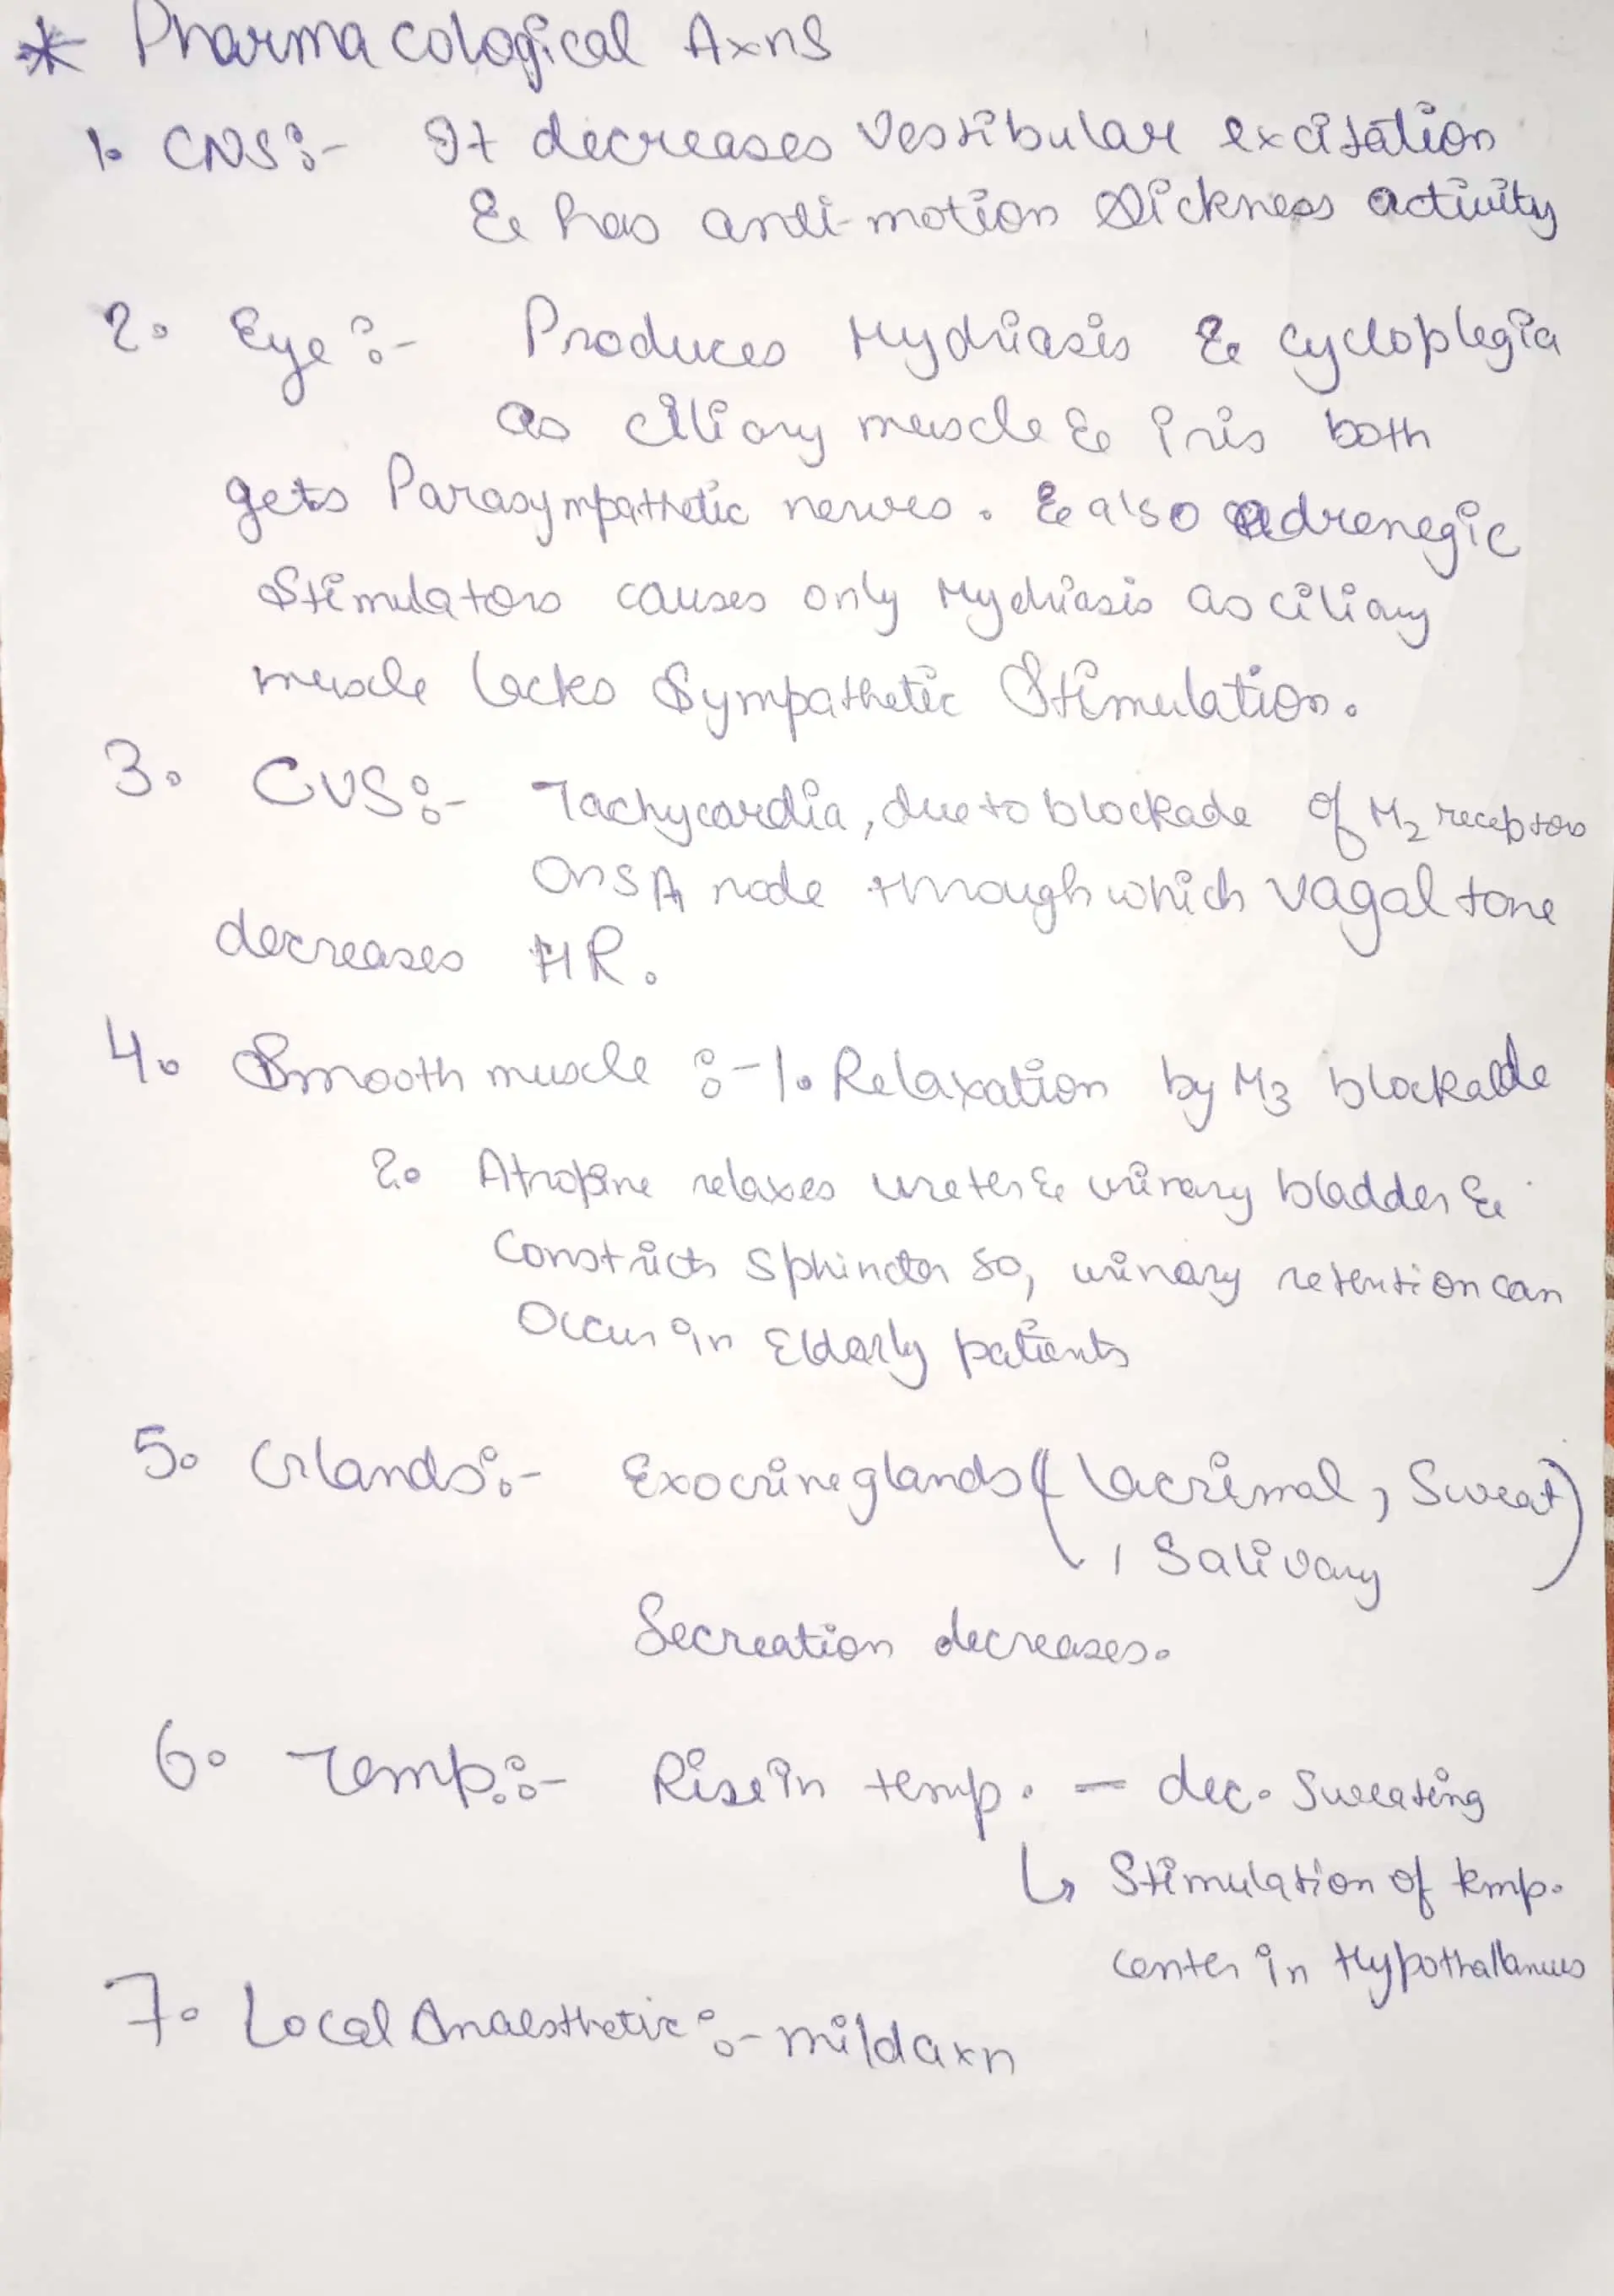 * Pharmacological Axns
1. CNS:- It decreases Vestibular excitation
& has anti-motion Sickness activity
2. Eye:- Produces Mydriasis & cycloplegia
as ciliary muscle & iris both
gets Parasympathetic nerves. & also adrenegic
Stimulators causes only Mydriasis as ciliary
muscle lacks Sympathetic Stimulation.
3. CVS:- Tachycardia, due to blockade of M2 receptors
On SA node through which vagal tone
decreases HR.
4. Smooth muscle :- 1. Relaxation by M3 blockade
2. Atropine relaxes ureter & urinary bladder &
Constricts Sphincter so, urinary retention can
Occur in Elderly patients
5. Glands:- Exocrine glands (Lacrimal, Sweat)
, Salivary
Secreation decreases.
6. Temp.:- Rise in temp. - dec. Sweating
↳ Stimulation of temp.
center in Hypothallamus
7. Local Anaesthetic :- mild axn